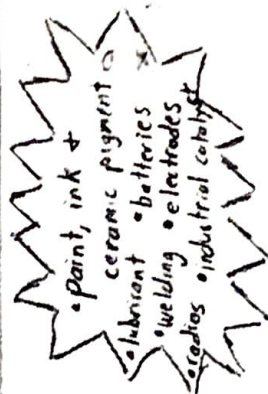 •paint, ink &
ceramic pigment
•lubricant •batteries
•welding •electrodes
•radios •industrial catalyst